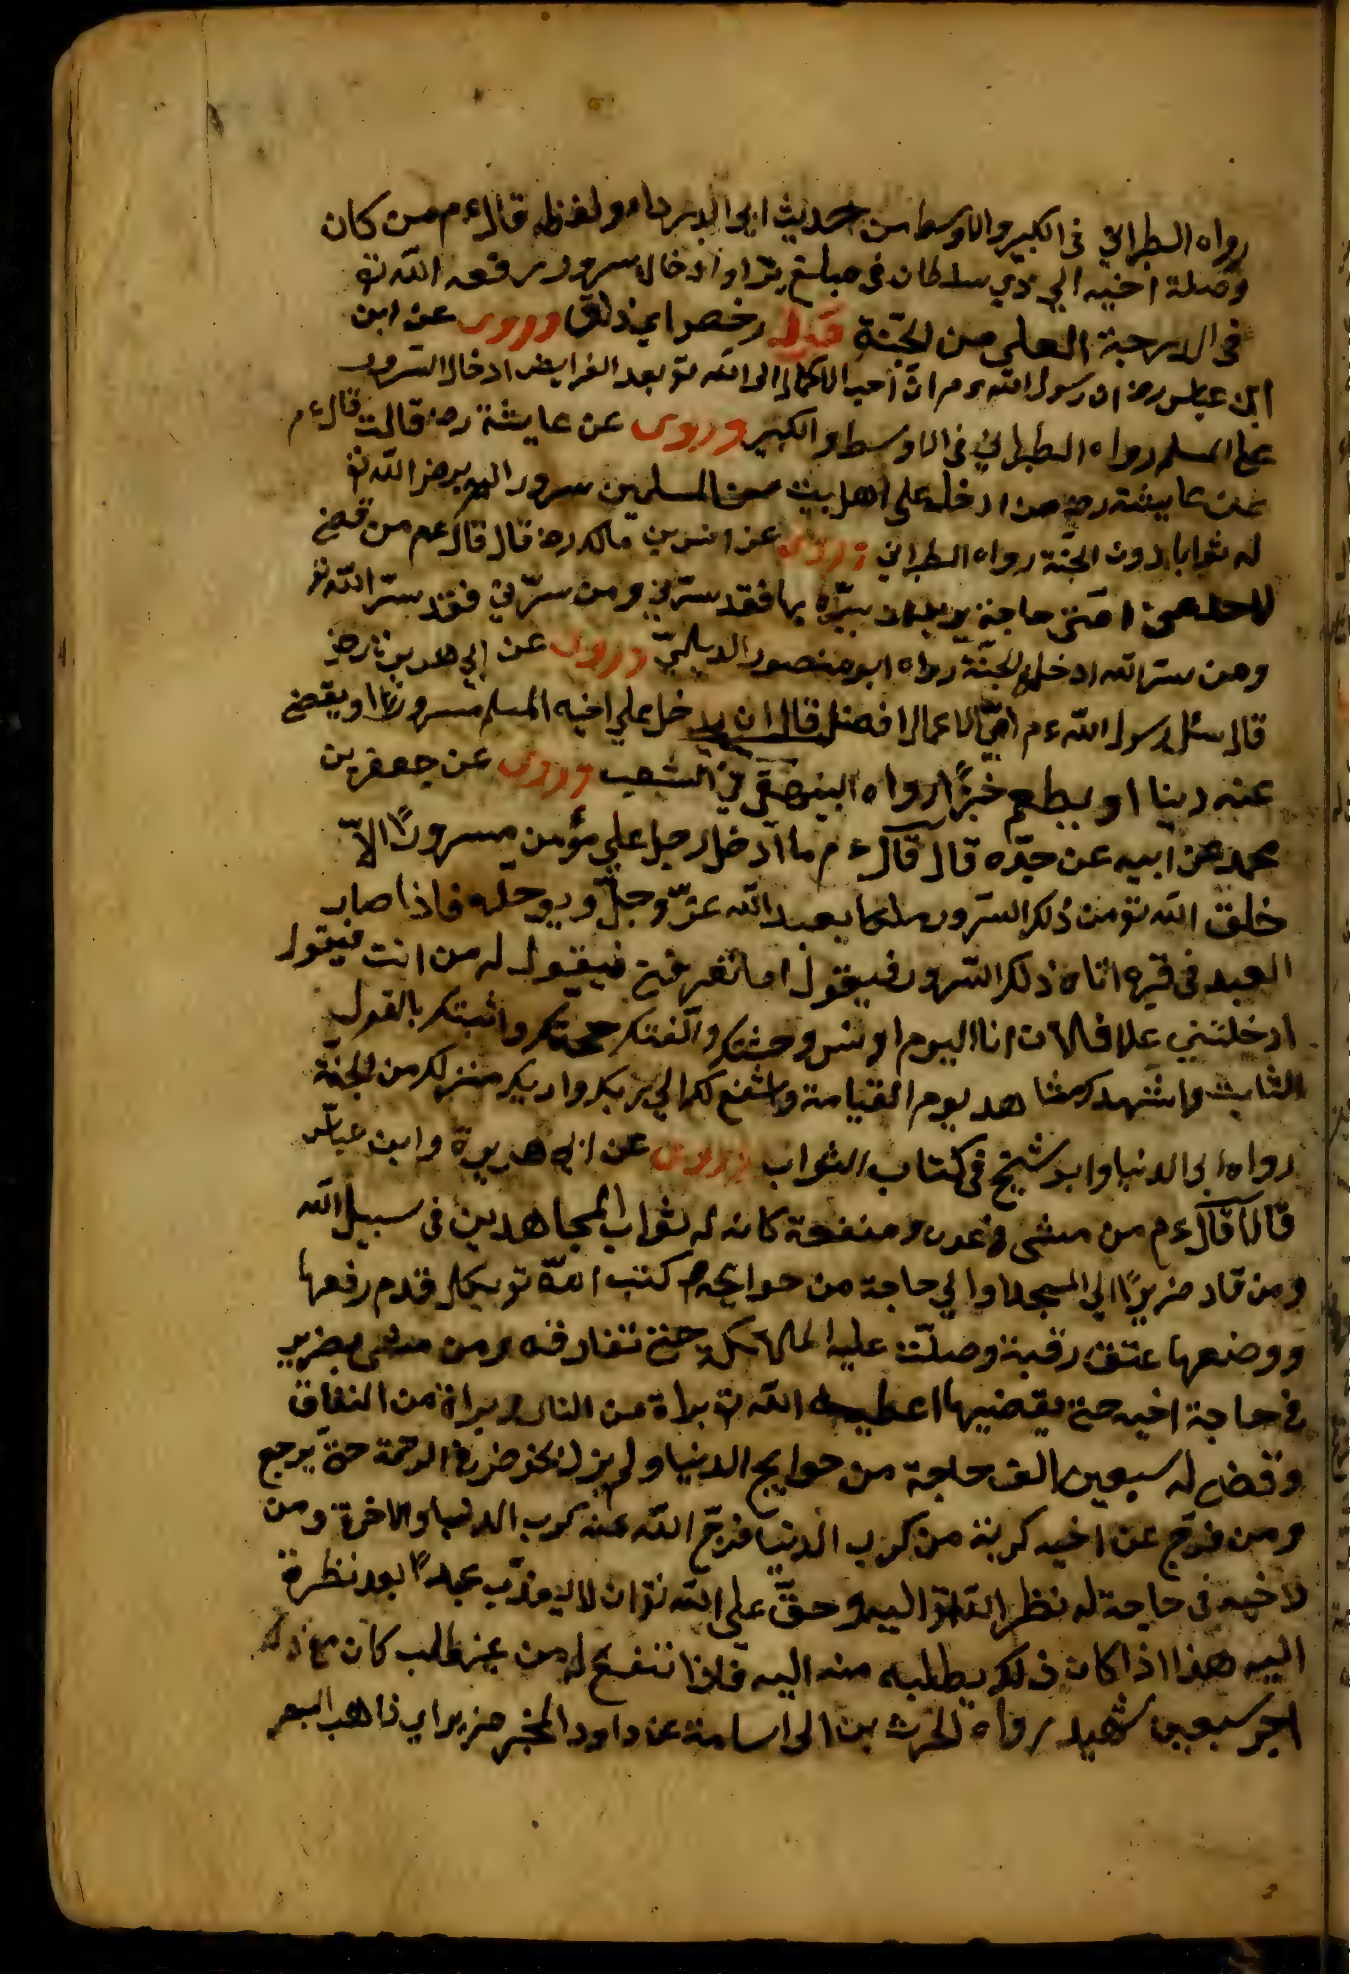 رواه الطبراني فى الكبير والاوسط من حديث ابى الدرداء ولفظه قال ءم من كان
وصلة اخيه الي ذي سلطان فى مبلغ برّ او ادخال سرور رفعه الله تع
فى الدرجة العلى من الجنّة قوله رخص اي ذلق وروى عن ابن
ابن عباس رض ان رسول الله ءم ان احب الاعمال الى الله تع بعد الفرايض ادخال السّرور
على المسلم رواه الطبراني فى الاوسط والكبير وروى عن عايشة رض قالت قال ءم
عن عايشة رض من ادخل على اهل بيت من المسلمين سرورا لم يرض الله تع
له ثوابا دون الجنّة رواه الطبراني وروى عن انس بن مالك رض قال قال ءم من قضى
لاحد من امتى حاجة يريد ان يسرّه بها فقد سرّنى ومن سرّني فقد سرّ الله تع
ومن سرّ الله ادخله الجنّة رواه ابو منصور الديلميّ وروى عن ابي هريرة رض
قال سئل رسول الله ءم ايّ الاعمال افضل قال ان يدخل على اخيه المسلم سرورا او يقضى
عنه دينا او يطعم خبزًا رواه البيهقى في الشعب وروى عن جعفر بن
محمد عن ابيه عن جدّه قال قال ءم ما ادخل رجل على مؤمن سرورًا الاّ
خلق الله تع من ذلك السّرور ملكا يعبد الله عزّ وجلّ ويوحّده فاذا صار
العبد فى قبره اتاه ذلك السّرور فيقول اما تعرفنى فيقول له من انت فيقول
ادخلتني على فلان انا اليوم اونس وحشتك والقنك حجتك واثبتك بالقول
الثابت واشهدك مشاهد يوم القيامة واشفع لك الي ربك واريك منزلك من الجنّة
رواه ابى الدنيا وابو شيخ فى كتاب الثواب وروى عن ابي هريرة وابن عباس
قالا قال ءم من مشى فى عون ومنفعة كانه له ثواب المجاهدين فى سبيل الله
ومن قاد ضريرًا الي المسجد او الي حاجة من حوايجه كتب الله تع بكل قدم رفعها
ووضعها عتق رقبة وصلّت عليه الملائكة حتى تفارقه ومن مشى بضرير
فى حاجة اخيه حتى يقضيها اعطيه الله تع براة من النار وبراة من النفاق
وقضى له سبعين الف حاجة من حوايج الدنيا ولم يزل يخوض في الرحمة حتى يرجع
ومن فرّج عن اخيه كربة من كرب الدنيا فرّج الله عنه كرب الدنيا والاخرة ومن
لاخيه فى حاجة له نظر الله تع اليه وحقّ على الله تع ان لا يعذّب عبدًا بعد نظرة
اليه هذا اذا كان ذلك يطلبه منه اليه فاذا من غير طلب كان مع ذلك
اجر سبعين شهيد رواه الحرث بن ابى اسامة عن داود المحبر ضرير اي ذاهب البصر